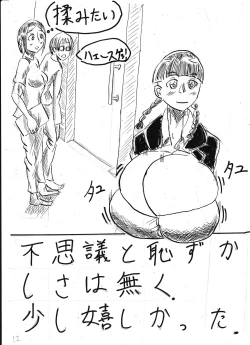 揉みたい
ハェースゲェ!
タユ
タユ
不思議と恥ずか
しさは無く、
少し嬉しかった。
12